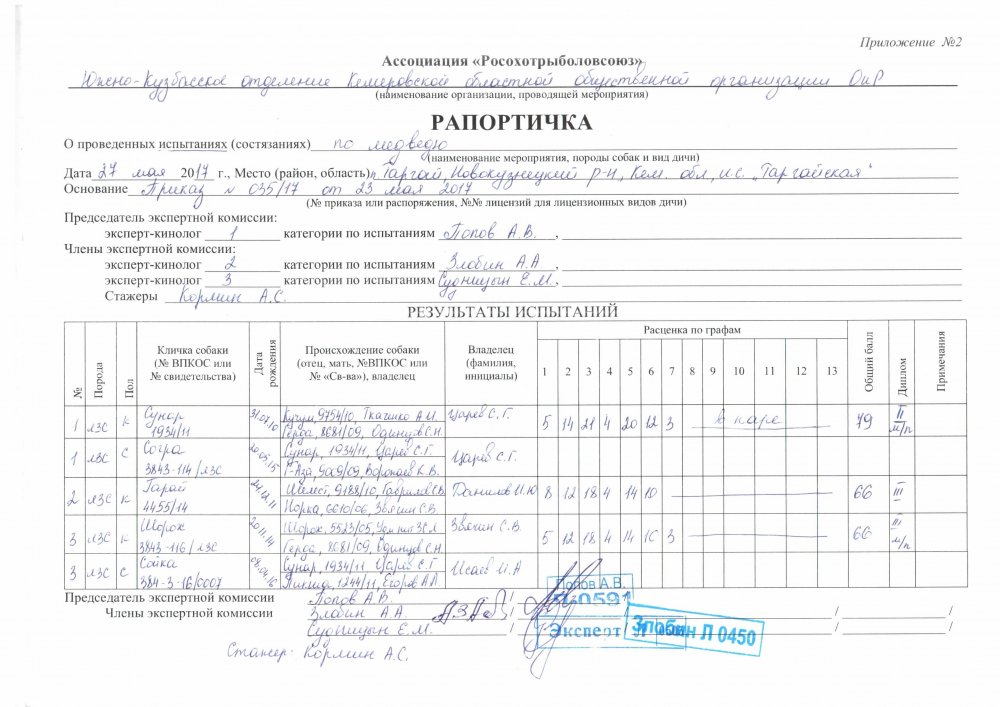 Приложение №2
Ассоциация «Росохотрыболовсоюз»
Южно-Кузбасское отделение Кемеровской областной общественной организации ОиР
(наименование организации, проводящей мероприятия)
РАПОРТИЧКА
О проведенных испытаниях (состязаниях) по медведю
(наименование мероприятия, породы собак и вид дичи)
Дата 27 мая 2017 г., Место (район, область) п. Таргай, Новокузнецкий р-н, Кем. обл, и.с. „Таргайская"
Основание Приказ № 035/17 от 23 мая 2017
(№ приказа или распоряжения, №№ лицензий для лицензионных видов дичи)
Председатель экспертной комиссии:
эксперт-кинолог 1 категории по испытаниям Попов А.В.,
Члены экспертной комиссии:
эксперт-кинолог 2 категории по испытаниям Злобин А.А
эксперт-кинолог 3 категории по испытаниям Судницын Е.М.,
Стажеры Кормин А.С.
РЕЗУЛЬТАТЫ ИСПЫТАНИЙ
№ Порода Пол Кличка собаки (№ ВПКОС или № свидетельства) Дата рождения Происхождение собаки (отец, мать, №ВПКОС или № «Св-ва»), владелец Владелец (фамилия, инициалы) Расценка по графам Общий балл Диплом Примечания
1 2 3 4 5 6 7 8 9 10 11 12 13
1 лзс к Сунар 1934/11 31.07.10 Кучум, 9754/10, Ткаченко А.И. Герда, 8681/09, Одинцов С.Н. Царев С.Г. 5 14 21 4 20 12 3 в паре 79 II м/п
1 лзс с Согра 3843-114/лзс 20.05.15 Сунар, 1934/11, Царев С.Г. Г-Аза, 9009/09, Воропаев К.В. Царев С.Г.
2 лзс к Гарай 4455/14 24.12.11 Шемст, 9188/10, Гаврилов С.В. Норка, 6610/06, Звягин С.В. Данилов И.Ю 8 12 18 4 14 10 66 III
3 лзс к Шорок 3843-116/лзс 20.11.14 Шорок, 5523/05, Герда, 8681/09, Одинцов С.Н. Звягин С.В. 5 12 18 4 14 10 3 66 III м/п
3 лзс с Сойка 384-3-16/0007 08.04.16 Сунар, 1934/11, Царев С.Г. 1244/11, Егоров А.П. Исаев И.А
Председатель экспертной комиссии Попов А.В. /
Члены экспертной комиссии Злобин А.А. /
Судницын Е.М. /
Стажер- Кормин А.С.
Попов А.В.
Л-0591
Эксперт
Злобин Л 0450